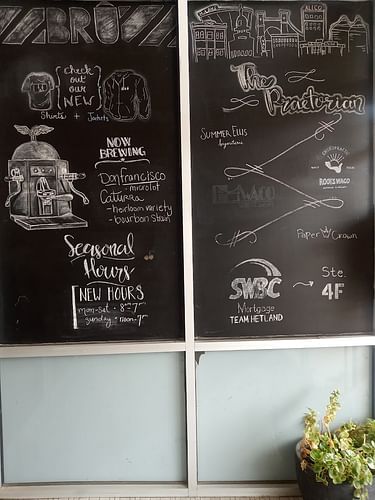 BRÜ
check
out
our
NEW
Shirts + Jackets
NOW
BREWING
Donfrancisco
- microlot
Caturra
- heirloom variety
- bourbon stain
Seasonal
Hours
NEW HOURS
mon-sat - 8-7
sunday - noon-7
ALICO
The
Praetorian
SUMMER ELLIS
WACO
Paper Crown
SWBC
Mortgage
TEAM HETLAND
Ste.
4F